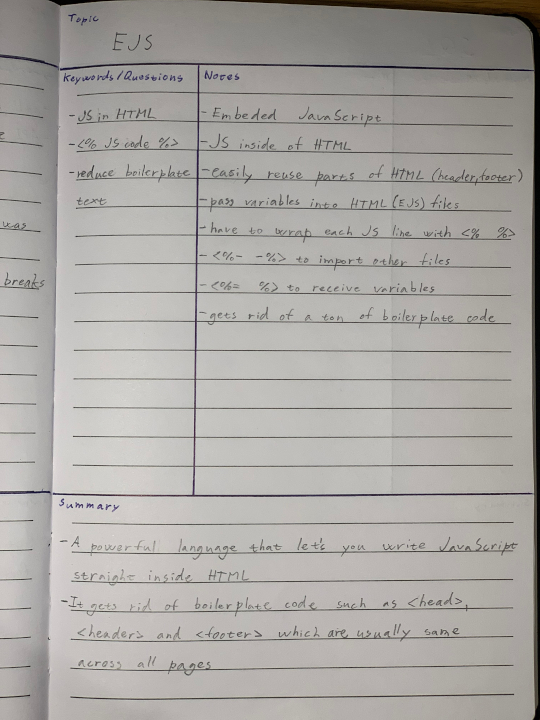 Topic
EJS
Keywords/Questions
Notes
- JS in HTML
- <% JS code %>
- reduce boilerplate
text
- Embeded JavaScript
- JS inside of HTML
- easily reuse parts of HTML (header, footer)
- pass variables into HTML (EJS) files
- have to wrap each JS line with <% %>
- <%- -%> to import other files
- <%= %> to receive variables
- gets rid of a ton of boilerplate code
Summary
- A powerful language that let's you write JavaScript
straight inside HTML
- It gets rid of boilerplate code such as <head>,
<header> and <footer> which are usually same
across all pages
was
breaks